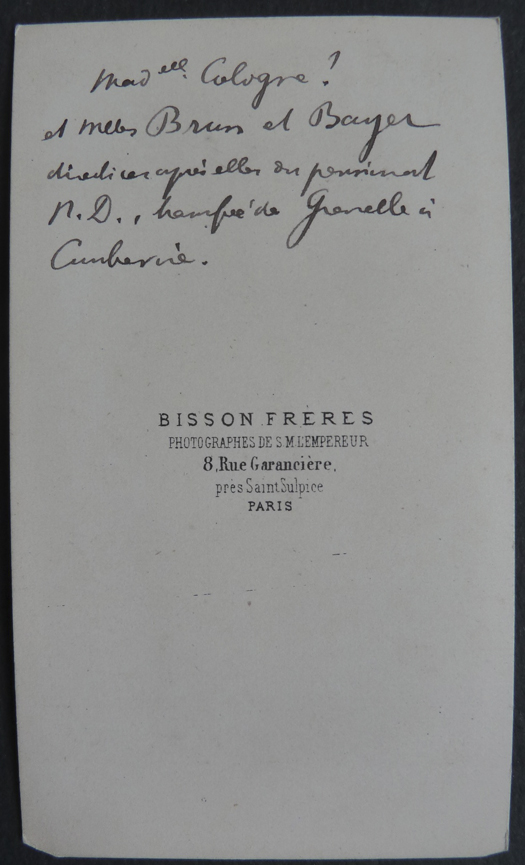 Mad elle. Cologne!
et Melles Brun et Bayer
directrices après elles du pensionnat
N. D., transféré de Grenelle à
PHOTOGRAPHES DE S M L'EMPEREUR
BISSON FRÈRES
8, Rue Garancière,
près Saint Sulpice
PARIS